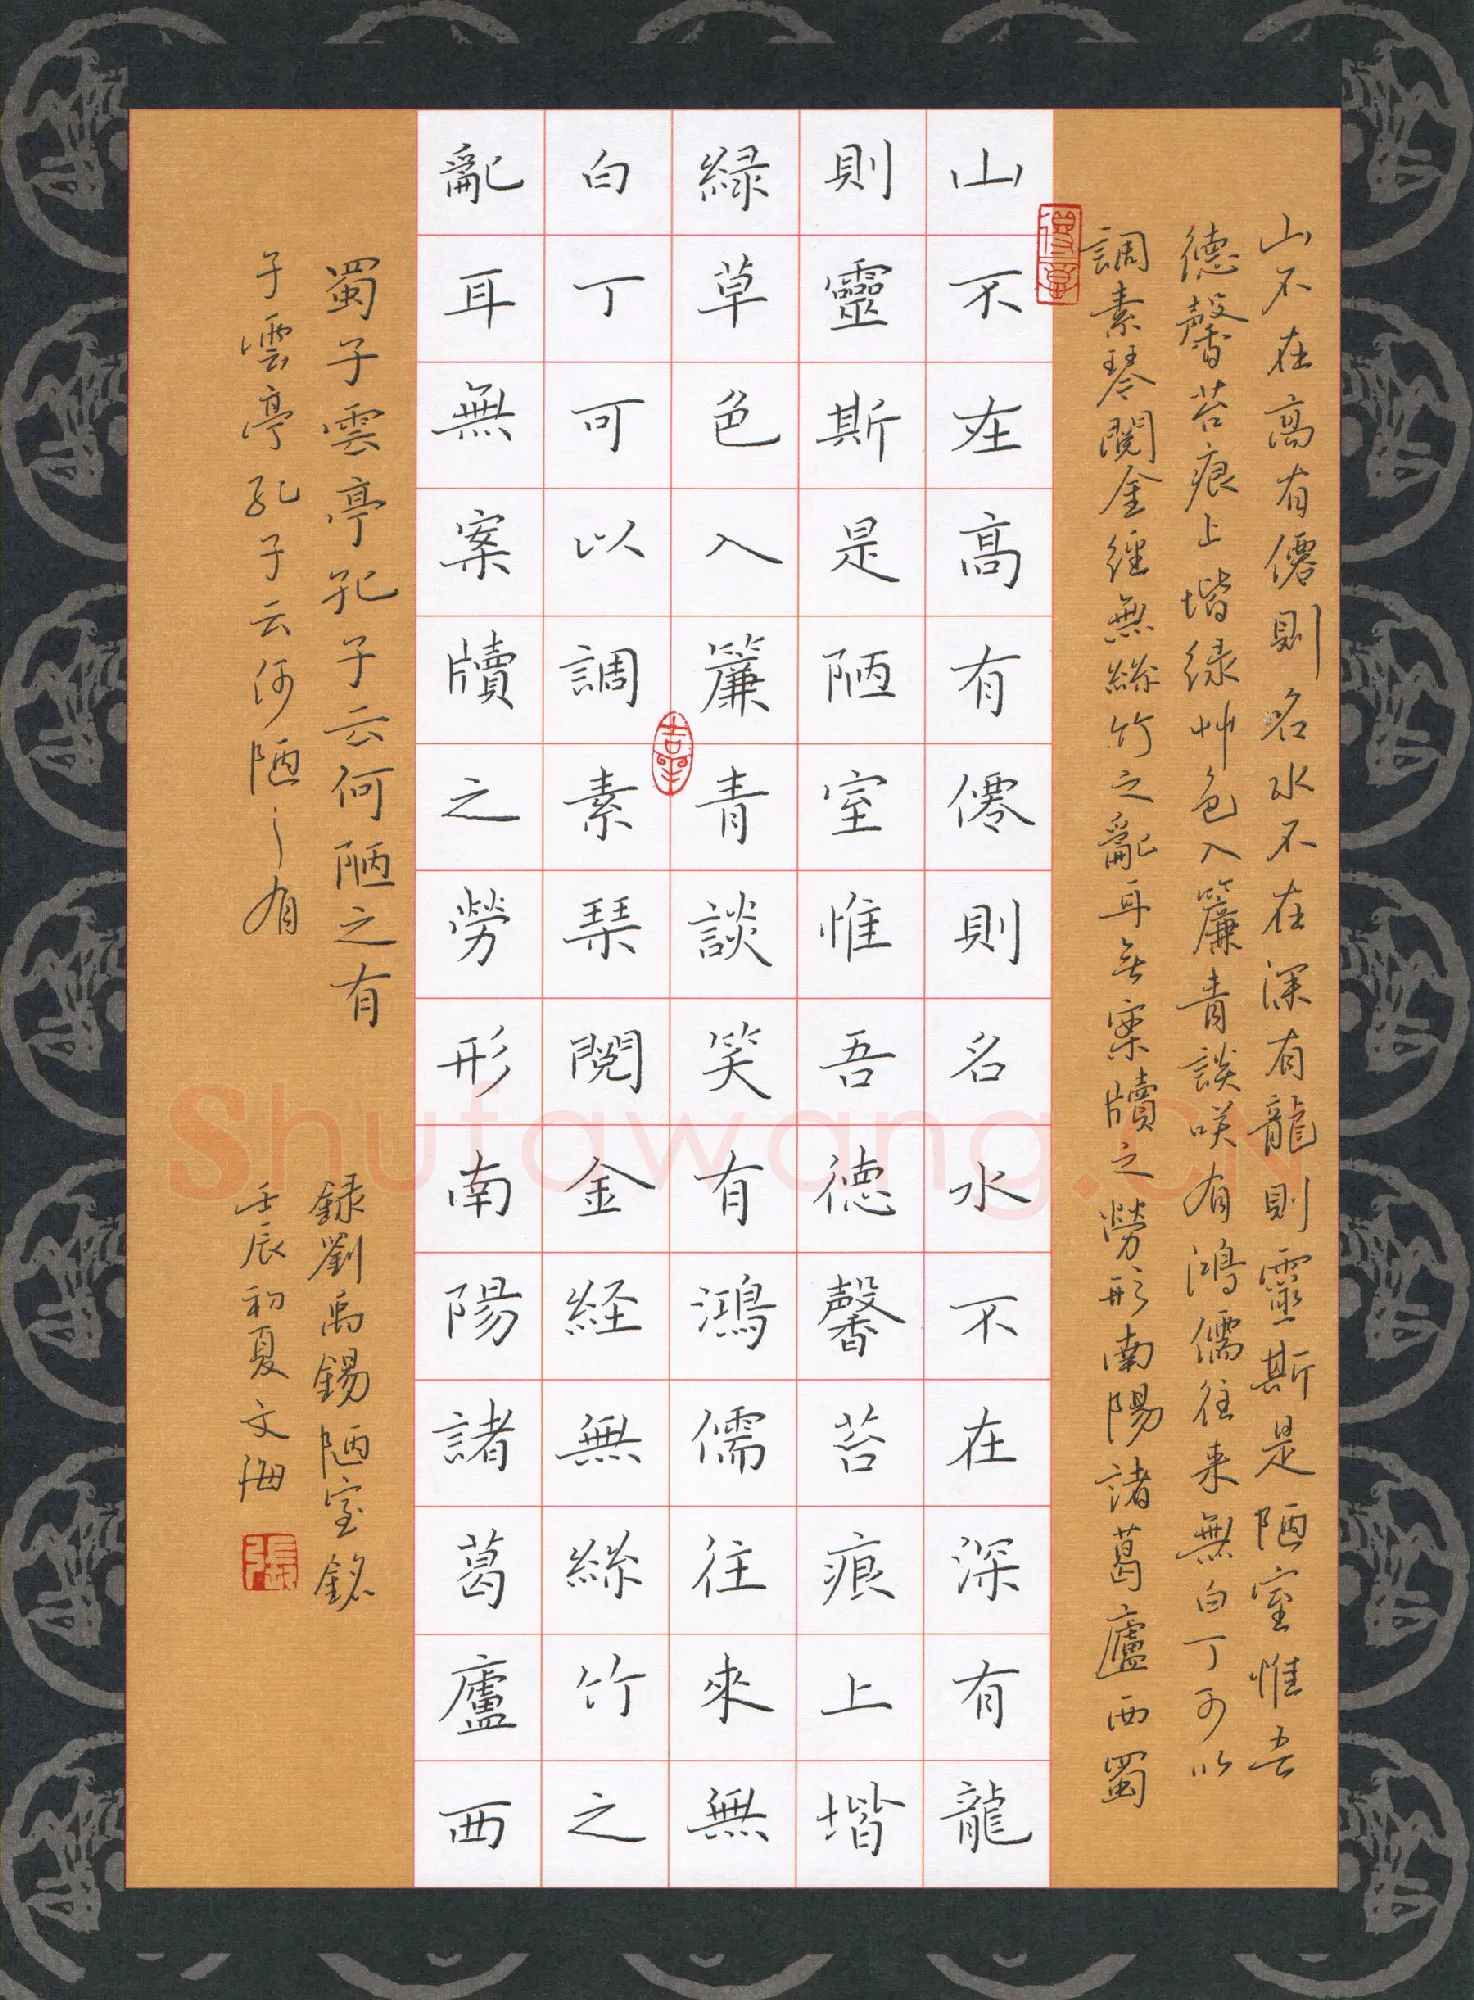 山不在高有僊則名水不在深有龍則靈斯是陋室惟吾
德馨苔痕上堦緑艸色入簾青談咲有鴻儒往来無白丁可以
調素琴閲金經無絲竹之亂耳無案牘之勞形南陽諸葛廬西蜀
山不在高有僊則名水不在深有龍
則靈斯是陋室惟吾德馨苔痕上堦
緑草色入簾青談笑有鴻儒往來無
白丁可以調素琹閲金経無絲竹之
亂耳無案牘之勞形南陽諸葛廬西
蜀子雲亭孔子云何陋之有
子雲亭孔子云何陋之有
録劉禹錫陋室銘
壬辰初夏文海
張
Shufawang.CN